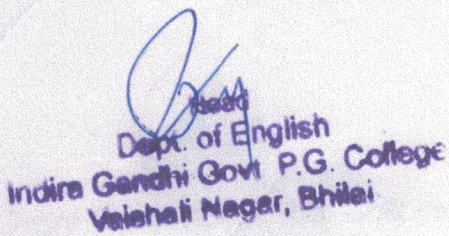 Head
Dept. of English
Indira Gandhi Govt P.G. College
Vaishali Nagar, Bhilai